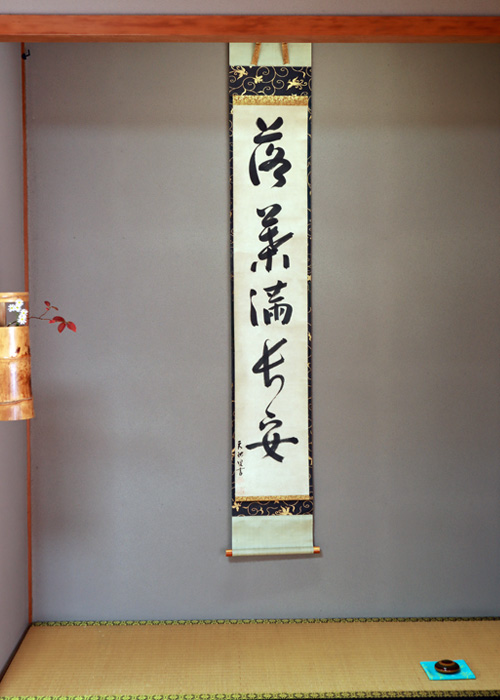 落葉満長安